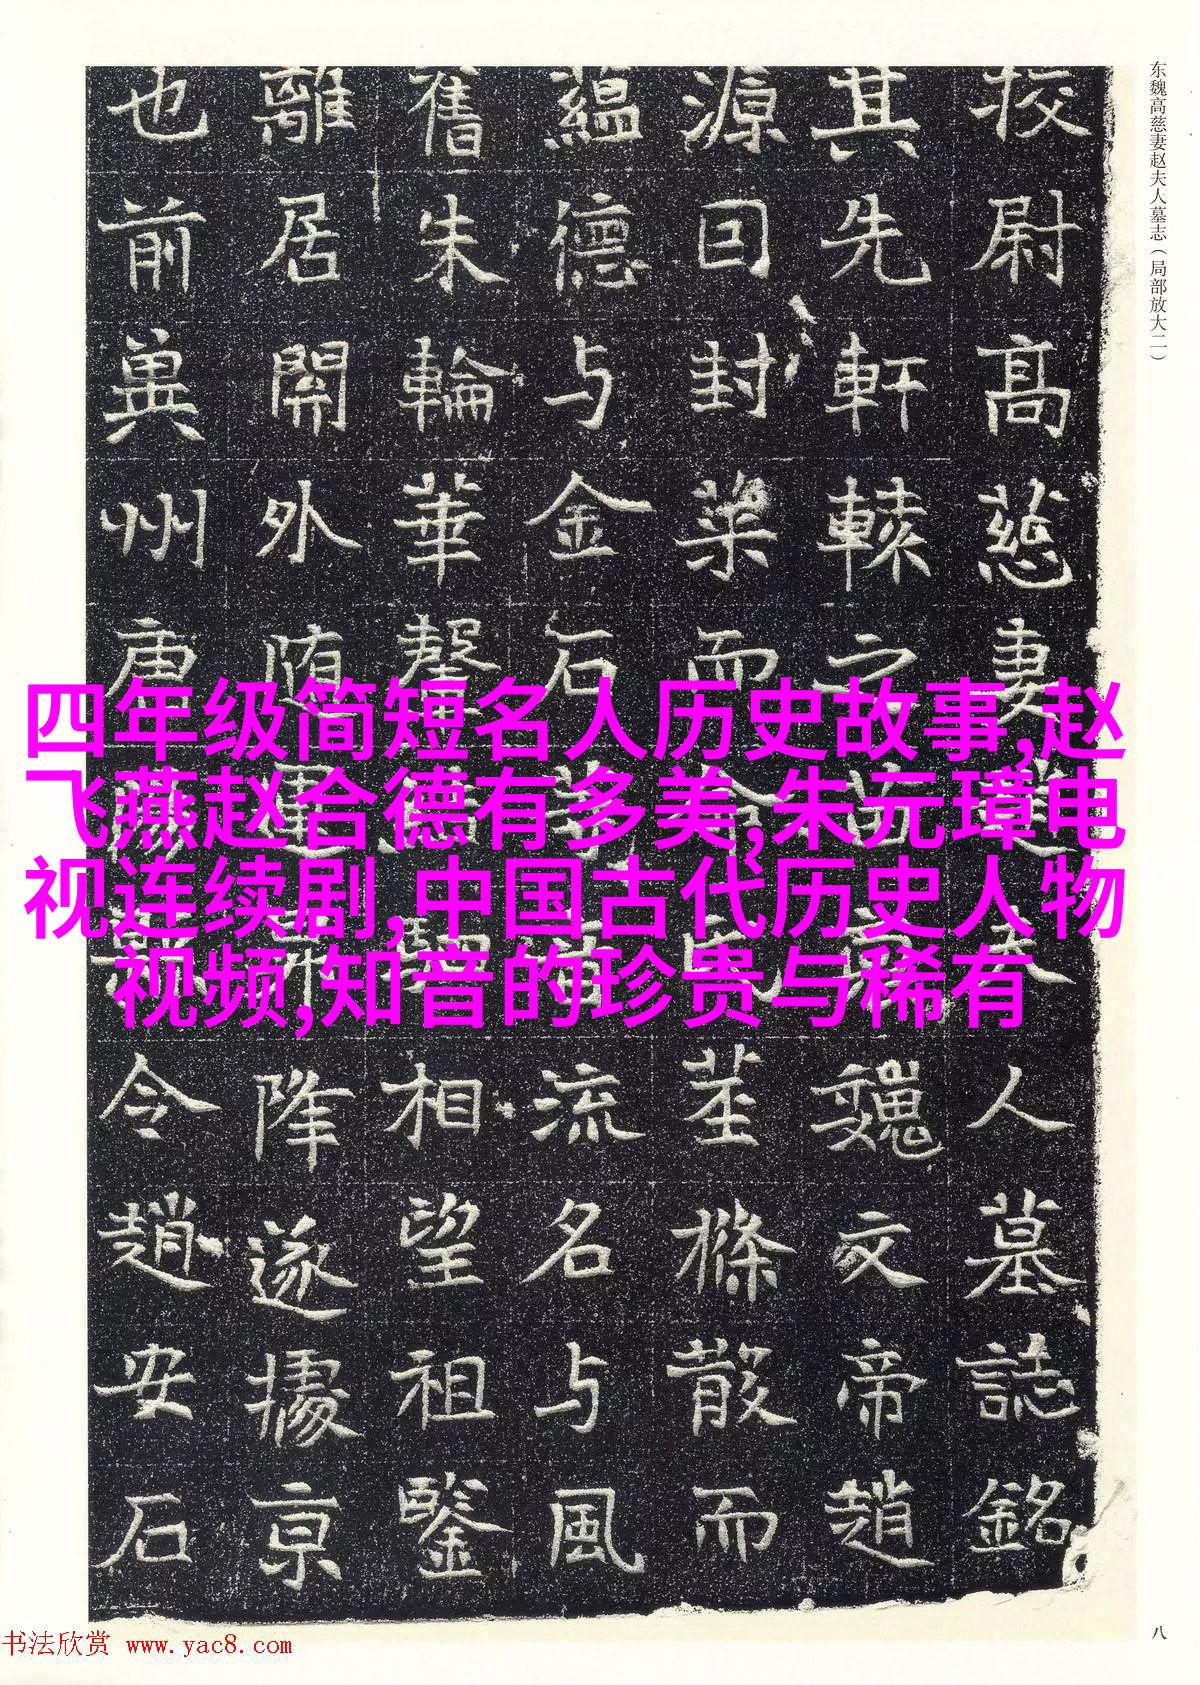 东魏高慈妻赵夫人墓志（局部放大二）
挍尉高慈妻趙夫人墓誌銘
其先軒轅之苗裔魏文帝趙
源囙封葉而命氏茎條散而
蘊德与金石流名与風
舊朱輪華相望祖鑒
離居開外随運昇降遂據京
也前冀州唐陽縣令趙安石
四年级简短名人历史故事,赵
飞燕赵合德有多美,朱元璋电
视连续剧,中国古代历史人物
视频,知音的珍贵与稀有
书法欣赏 www.yac8.com
八